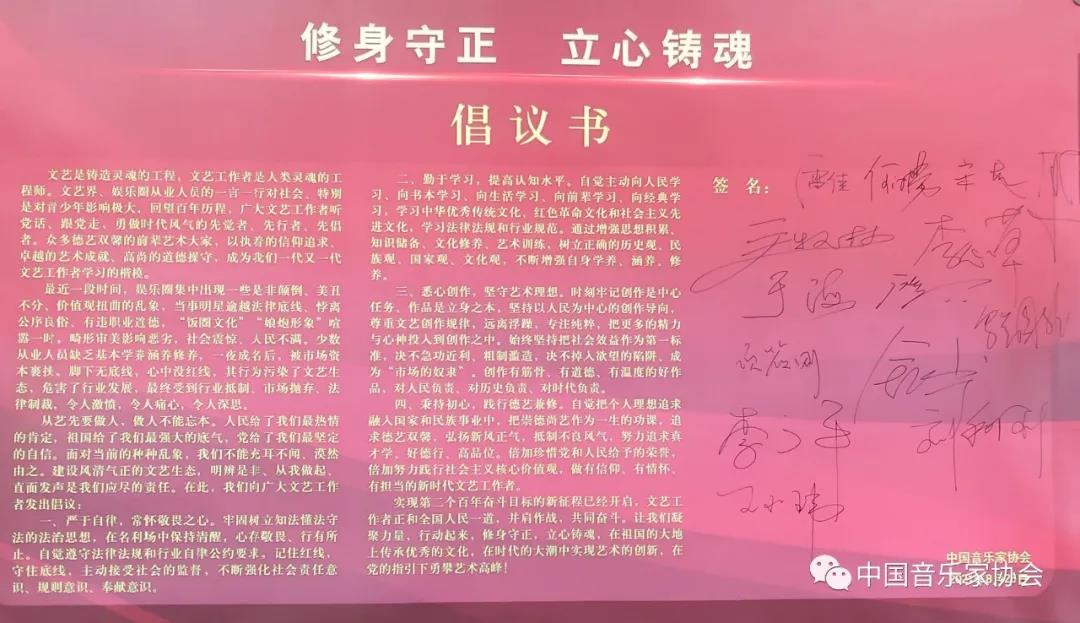 修身守正 立心铸魂
倡议书
文艺是铸造灵魂的工程，文艺工作者是人类灵魂的工
程师。文艺界、娱乐圈从业人员的一言一行对社会、特别
是对青少年影响极大，回望百年历程，广大文艺工作者听
党话、跟党走，勇做时代风气的先觉者、先行者、先倡
者。众多德艺双馨的前辈艺术大家，以执着的信仰追求、
卓越的艺术成就、高尚的道德操守，成为我们一代又一代
文艺工作者学习的楷模。
最近一段时间，娱乐圈集中出现一些是非颠倒、美丑
不分、价值观扭曲的乱象，当事明星逾越法律底线、悖离
公序良俗、有违职业道德，“饭圈文化”“娘炮形象”喧
嚣一时。畸形审美影响恶劣，社会震惊、人民不满。少数
从业人员缺乏基本学养涵养修养，一夜成名后，被市场资
本裹挟。脚下无底线，心中没红线，其行为污染了文艺生
态，危害了行业发展，最终受到行业抵制、市场抛弃、法
律制裁，令人激愤，令人痛心，令人深思。
从艺先要做人，做人不能忘本。人民给了我们最热情
的肯定，祖国给了我们最强大的底气，党给了我们最坚定
的自信。面对当前的种种乱象，我们不能充耳不闻、漠然
由之。建设风清气正的文艺生态，明辨是非、从我做起、
直面发声是我们应尽的责任。在此，我们向广大文艺工作
者发出倡议：
一、严于自律，常怀敬畏之心。牢固树立知法懂法守
法的法治思想，在名利场中保持清醒，心存敬畏、行有所
止。自觉遵守法律法规和行业自律公约要求。记住红线，
守住底线，主动接受社会的监督，不断强化社会责任意
识、规则意识、奉献意识。
二、勤于学习，提高认知水平。自觉主动向人民学
习、向书本学习、向生活学习、向前辈学习、向经典学
习，学习中华优秀传统文化、红色革命文化和社会主义先
进文化，学习法律法规和行业规范。通过增强思想积累、
知识储备、文化修养、艺术训练，树立正确的历史观、民
族观、国家观、文化观，不断增强自身学养、涵养、修
养。
三、悉心创作，坚守艺术理想。时刻牢记创作是中心
任务、作品是立身之本，坚持以人民为中心的创作导向，
尊重文艺创作规律，远离浮躁，专注纯粹，把更多的精力
与心神投入到创作之中。始终坚持把社会效益作为第一标
准，决不急功近利、粗制滥造，决不掉入欲望的陷阱、成
为“市场的奴隶”。创作有筋骨、有道德、有温度的好作
品，对人民负责、对历史负责、对时代负责。
四、秉持初心，践行德艺兼修。自觉把个人理想追求
融入国家和民族事业中，把崇德尚艺作为一生的功课，追
求德艺双馨，弘扬新风正气，抵制不良风气，努力追求真
才学、好德行、高品位。倍加珍惜党和人民给予的荣誉，
倍加努力践行社会主义核心价值观，做有信仰、有情怀、
有担当的新时代文艺工作者。
实现第二个百年奋斗目标的新征程已经开启，文艺工
作者正和全国人民一道，并肩作战，共同奋斗。让我们凝
聚力量，行动起来，修身守正，立心铸魂，在祖国的大地
上传承优秀的文化，在时代的大潮中实现艺术的创新，在
党的指引下勇攀艺术高峰！
签 名：
雷佳
于海
中国音乐家协会
中国音乐家协会